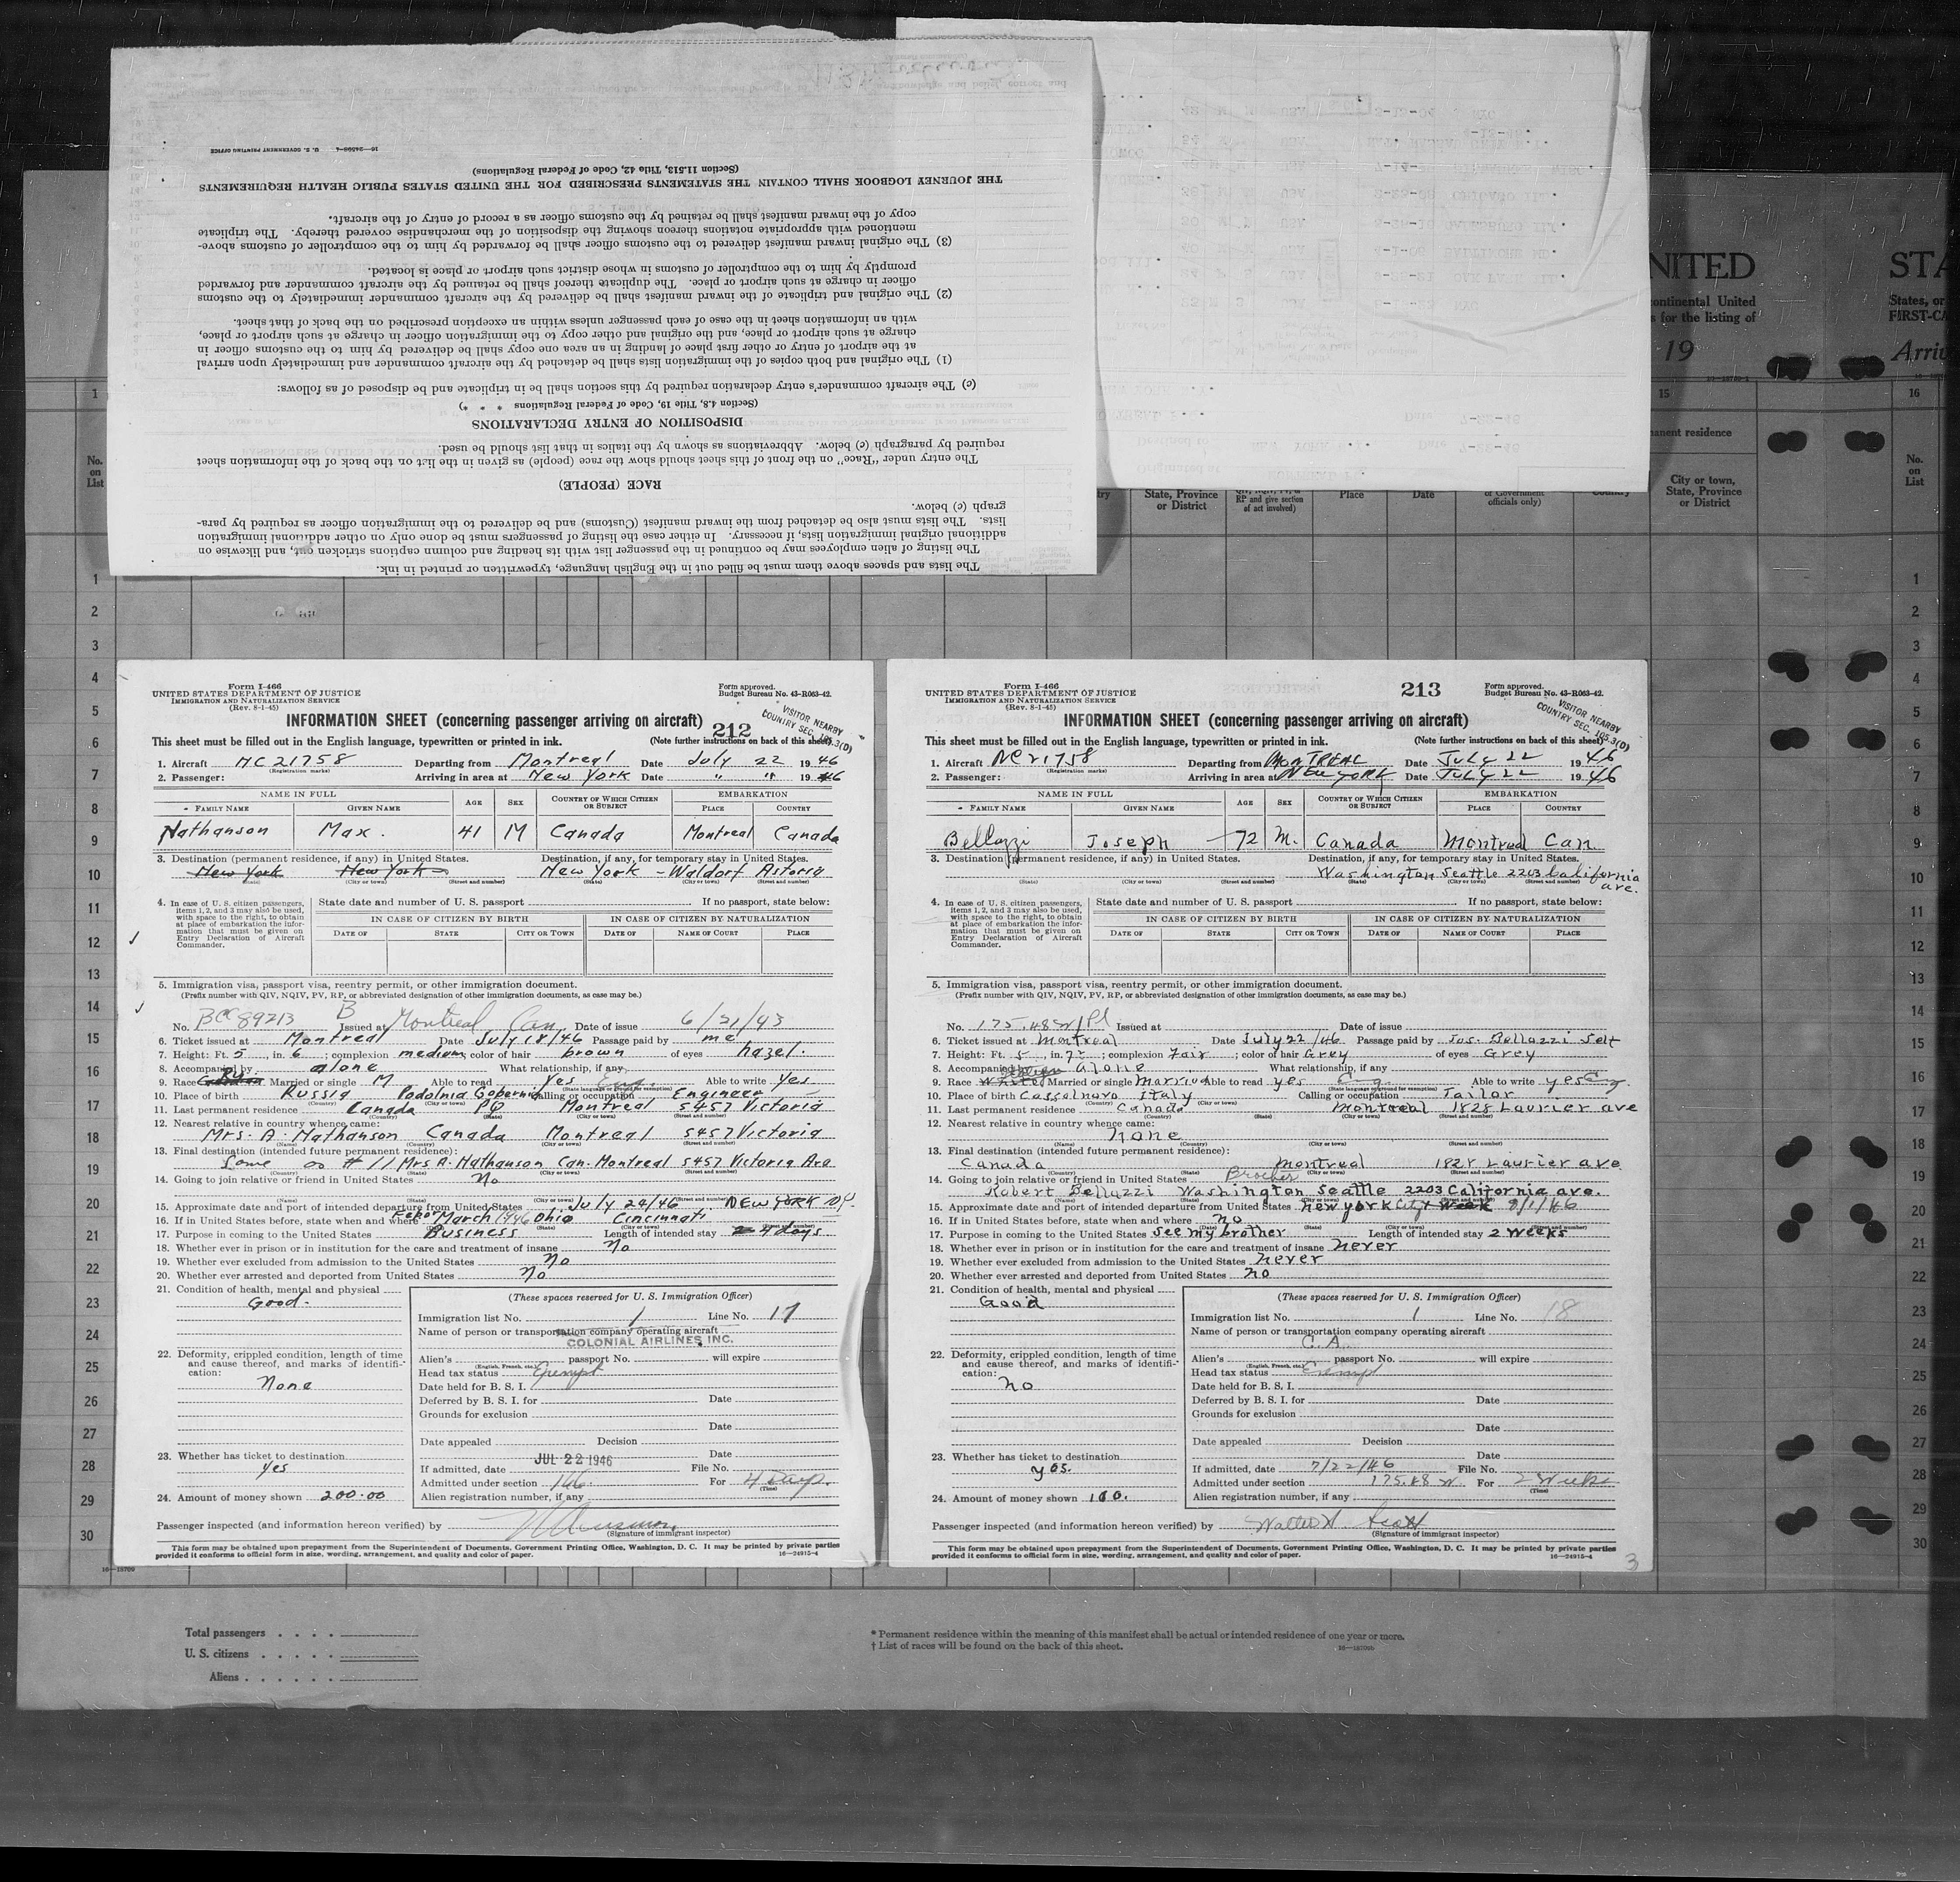 The lists and spaces above them must be filled out in the English language, typewritten or printed in ink.
The listing of alien employees may be continued in the passenger list with its heading and column captions stricken out, and likewise on
additional original immigration lists, if necessary. In either case the listing of passengers must be done only on other additional immigration
lists. The lists must also be detached from the inward manifest (Customs) and be delivered to the immigration officer as required by para-
graph (c) below.
RACE (PEOPLE)
The entry under "Race" on the front of this sheet should show the race (people) as given in the list on the back of the information sheet
required by paragraph (c) below. Abbreviations as shown by the italics in that list should be used.
DISPOSITION OF ENTRY DECLARATIONS
(Section 4.8, Title 19, Code of Federal Regulations * * *)
(c) The aircraft commander's entry declaration required by this section shall be in triplicate and be disposed of as follows:
(1) The original and both copies of the immigration lists shall be detached by the aircraft commander and immediately upon arrival
at the airport of entry or other first place of landing in an area one copy shall be delivered by him to the customs officer in
charge at such airport or place, and the original and other copy to the immigration officer in charge at such airport or place,
with an information sheet in the case of each passenger unless within an exception prescribed on the back of that sheet.
(2) The original and triplicate of the inward manifest shall be delivered by the aircraft commander immediately to the customs
officer in charge at such airport or place. The duplicate thereof shall be retained by the aircraft commander and forwarded
promptly by him to the comptroller of customs in whose district such airport or place is located.
(3) The original inward manifest delivered to the customs officer shall be forwarded by him to the comptroller of customs above-
mentioned with appropriate notations thereon showing the disposition of the merchandise covered thereby. The triplicate
copy of the inward manifest shall be retained by the customs officer as a record of entry of the aircraft.
THE JOURNEY LOGBOOK SHALL CONTAIN THE STATEMENTS PRESCRIBED FOR THE UNITED STATES PUBLIC HEALTH REQUIREMENTS
(Section 11.513, Title 42, Code of Federal Regulations)
U. S. GOVERNMENT PRINTING OFFICE 16—24598-4
NITED STA
ontinental United States, or
s for the listing of FIRST-CA
19 Arriv
1 15 16
anent residence
No. on List
State, Province or District
RP and give section of act involved)
Place Date
of Government officials only)
City or town, State, Province or District
No. on List
Form I-466
UNITED STATES DEPARTMENT OF JUSTICE
IMMIGRATION AND NATURALIZATION SERVICE
(Rev. 8-1-45)
Form approved.
Budget Bureau No. 43-R063-42.
VISITOR NEARBY
COUNTRY SEC. 105.3(D)
INFORMATION SHEET (concerning passenger arriving on aircraft) 212
This sheet must be filled out in the English language, typewritten or printed in ink. (Note further instructions on back of this sheet)
1. Aircraft NC 21758 Departing from Montreal Date July 22 1946
(Registration marks)
2. Passenger: Arriving in area at New York Date " " 1946
NAME IN FULL AGE SEX COUNTRY OF WHICH CITIZEN OR SUBJECT EMBARKATION
FAMILY NAME GIVEN NAME PLACE COUNTRY
Nathanson Max. 41 M Canada Montreal Canada
3. Destination (permanent residence, if any) in United States. Destination, if any, for temporary stay in United States.
New York New York New York - Waldorf Astoria
(State) (City or town) (Street and number) (State) (City or town) (Street and number)
4. In case of U. S. citizen passengers, items 1, 2, and 3 may also be used, with space to the right, to obtain at place of embarkation the information that must be given on Entry Declaration of Aircraft Commander.
State date and number of U. S. passport If no passport, state below:
IN CASE OF CITIZEN BY BIRTH IN CASE OF CITIZEN BY NATURALIZATION
DATE OF STATE CITY OR TOWN DATE OF NAME OF COURT PLACE
5. Immigration visa, passport visa, reentry permit, or other immigration document.
(Prefix number with QIV, NQIV, PV, RP, or abbreviated designation of other immigration documents, as case may be.)
No. BCC 89213 B Issued at Montreal Can Date of issue 6/21/43
6. Ticket issued at Montreal Date July 18/46 Passage paid by me
7. Height: Ft. 5, in. 6; complexion medium; color of hair brown of eyes hazel.
8. Accompanied by alone What relationship, if any
9. Race Married or single M Able to read Yes Eng. Able to write Yes
(State language or ground for exemption)
10. Place of birth Russia Podolnia Gobernia Calling or occupation Engineer
11. Last permanent residence Canada PQ Montreal 5457 Victoria
12. Nearest relative in country whence came:
Mrs. A. Nathanson Canada Montreal 5457 Victoria
(Name) (Country) (City or town) (Street and number)
13. Final destination (intended future permanent residence):
Same as # 11 Mrs A. Nathanson Can. Montreal 5457 Victoria Ave
14. Going to join relative or friend in United States No
(Name) (State) (City or town) (Street and number)
15. Approximate date and port of intended departure from United States July 26/46 NEW YORK NY.
16. If in United States before, state when and where March 1946 Ohio Cincinnati
17. Purpose in coming to the United States Business Length of intended stay 4 days
18. Whether ever in prison or in institution for the care and treatment of insane No
19. Whether ever excluded from admission to the United States No
20. Whether ever arrested and deported from United States No
21. Condition of health, mental and physical
Good.
22. Deformity, crippled condition, length of time and cause thereof, and marks of identification:
None
23. Whether has ticket to destination
Yes
24. Amount of money shown 200.00
(These spaces reserved for U. S. Immigration Officer)
Immigration list No. 1 Line No. 17
Name of person or transportation company operating aircraft
COLONIAL AIRLINES INC.
Alien's passport No. will expire
(English, French, etc.)
Head tax status Exempt
Date held for B. S. I.
Deferred by B. S. I. for Date
Grounds for exclusion
Date
Date appealed Decision
Date
If admitted, date JUL 22 1946 File No.
Admitted under section For 4 Days
(Time)
Alien registration number, if any
Passenger inspected (and information hereon verified) by
(Signature of immigrant inspector)
This form may be obtained upon prepayment from the Superintendent of Documents, Government Printing Office, Washington, D. C. It may be printed by private parties
provided it conforms to official form in size, wording, arrangement, and quality and color of paper. 16—24915-4
Form I-466
UNITED STATES DEPARTMENT OF JUSTICE
IMMIGRATION AND NATURALIZATION SERVICE
(Rev. 8-1-45)
213
Form approved.
Budget Bureau No. 43-R063-42.
VISITOR NEARBY
COUNTRY SEC. 105.3(D)
INFORMATION SHEET (concerning passenger arriving on aircraft)
This sheet must be filled out in the English language, typewritten or printed in ink. (Note further instructions on back of this sheet)
1. Aircraft NC 21758 Departing from MONTREAL Date JULY 22 1946
(Registration marks)
2. Passenger: Arriving in area at NEW YORK Date JULY 22 1946
NAME IN FULL AGE SEX COUNTRY OF WHICH CITIZEN OR SUBJECT EMBARKATION
FAMILY NAME GIVEN NAME PLACE COUNTRY
Bellazzi Joseph 72 M. Canada Montreal Can.
3. Destination (permanent residence, if any) in United States. Destination, if any, for temporary stay in United States.
Washington Seattle 2203 California ave.
(State) (City or town) (Street and number) (State) (City or town) (Street and number)
4. In case of U. S. citizen passengers, items 1, 2, and 3 may also be used, with space to the right, to obtain at place of embarkation the information that must be given on Entry Declaration of Aircraft Commander.
State date and number of U. S. passport If no passport, state below:
IN CASE OF CITIZEN BY BIRTH IN CASE OF CITIZEN BY NATURALIZATION
DATE OF STATE CITY OR TOWN DATE OF NAME OF COURT PLACE
5. Immigration visa, passport visa, reentry permit, or other immigration document.
(Prefix number with QIV, NQIV, PV, RP, or abbreviated designation of other immigration documents, as case may be.)
No. 175.48 Issued at Date of issue
6. Ticket issued at Montreal Date July 22/46 Passage paid by Jos. Bellazzi Self
7. Height: Ft. 5, in. ; complexion Fair; color of hair Grey of eyes Grey
8. Accompanied by alone What relationship, if any
9. Race White Married or single Married Able to read yes Eng Able to write yes Eng
(State language or ground for exemption)
10. Place of birth Cassolnovo Italy Calling or occupation Tailor
11. Last permanent residence Canada Montreal 1828 Laurier ave
12. Nearest relative in country whence came:
none
(Name) (Country) (City or town) (Street and number)
13. Final destination (intended future permanent residence):
Canada Montreal 1828 Laurier ave
14. Going to join relative or friend in United States Brother
Robert Bellazzi Washington Seattle 2203 California ave.
15. Approximate date and port of intended departure from United States new york City 8/1/46
16. If in United States before, state when and where no
17. Purpose in coming to the United States see my brother Length of intended stay 2 weeks
18. Whether ever in prison or in institution for the care and treatment of insane never
19. Whether ever excluded from admission to the United States never
20. Whether ever arrested and deported from United States no
21. Condition of health, mental and physical
Good
22. Deformity, crippled condition, length of time and cause thereof, and marks of identification:
no
23. Whether has ticket to destination
yes.
24. Amount of money shown 100.
(These spaces reserved for U. S. Immigration Officer)
Immigration list No. 1 Line No. 18
Name of person or transportation company operating aircraft
C. A.
Alien's passport No. will expire
(English, French, etc.)
Head tax status Exempt
Date held for B. S. I.
Deferred by B. S. I. for Date
Grounds for exclusion
Date
Date appealed Decision
Date
If admitted, date 7/22/46 File No.
Admitted under section 175.48 For 2 Weeks
(Time)
Alien registration number, if any
Passenger inspected (and information hereon verified) by Walter H Scott
(Signature of immigrant inspector)
This form may be obtained upon prepayment from the Superintendent of Documents, Government Printing Office, Washington, D. C. It may be printed by private parties
provided it conforms to official form in size, wording, arrangement, and quality and color of paper. 16—24915-4
3
Total passengers
U. S. citizens
Aliens
* Permanent residence within the meaning of this manifest shall be actual or intended residence of one year or more.
† List of races will be found on the back of this sheet.